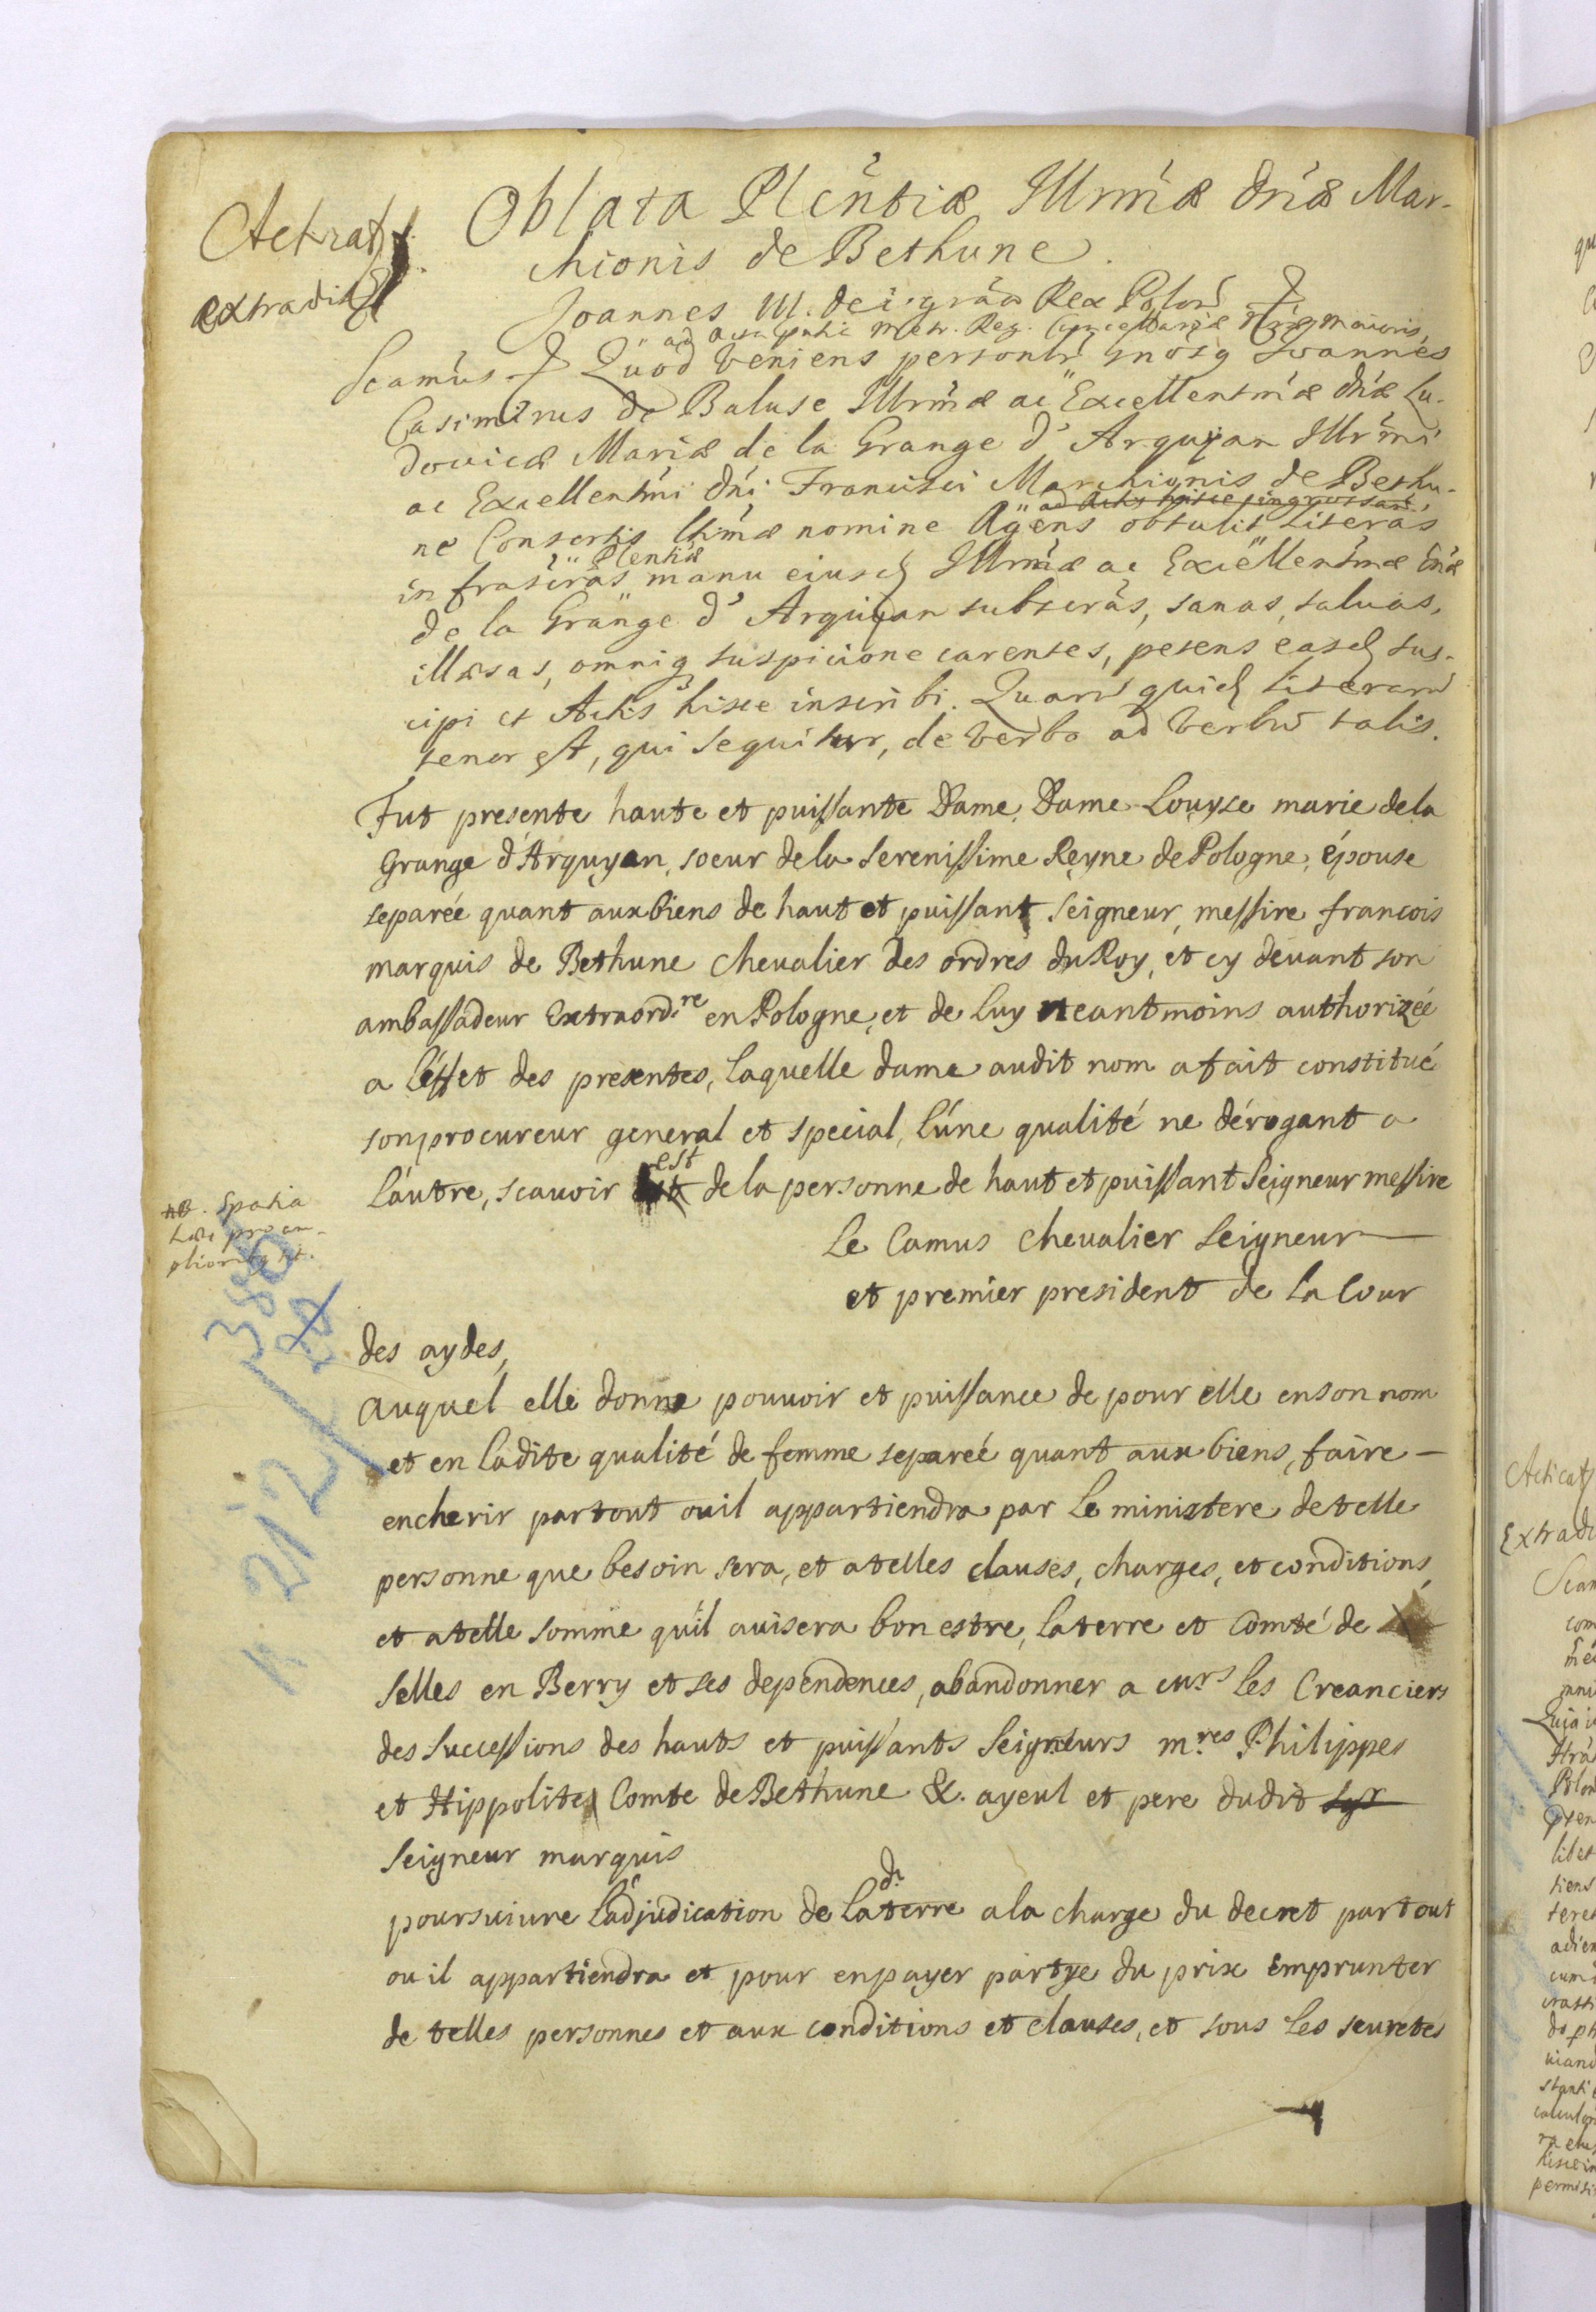 Oblata Plentiæ Illrmæ dnæ Mar-
chionis de Bethune.
extradit
Joannes III. dei grãa Rex Polon
ad Acta Metr. Reg. Cancellariæ maioris
Scamus Quod veniens personlr Joannes
Casimirus de Baluse Illrmæ ac Excellentmæ dnæ Lu-
douicæ Mariæ de la Grange d'Arquyan Illrmi
ac Excellentmi dni Francisci Marchionis de Bethu-
ad Acta hisce ingrossand
ne Consortis ltimæ nomine Agens obtulit literas
Plentiæ
infrascras manu eiusd Illrmæ ac Excellentmæ dnæ
de la Grange d'Arquyan subscras, sanas, saluas,
illæsas, omniq suspicione carentes, petens easd sus-
cipi et Actis hisce inscribi. Quaru quid literaru
tenor est, qui sequitur, de verbo ad verbu talis.
Fut presente haute et puissante Dame, Dame Louyse marie dela
Grange d'Arquyan, soeur dela serenissime Reyne de Pologne, épouse
separée quant aux biens de haut et puissant seigneur, messire francois
marquis de Bethune chevalier des ordres du Roy, et cy deuant son
ambassadeur Extraord.re en Pologne, et de luy neantmoins authorizée
a l'éffet des presentes, laquelle dame audit nom a fait constitué
son procureur general et special, l'úne qualité ne dérogant a
est
l'autre, scauoir de la personne de haut et puissant Seigneur messire
NB. Spatia
pro am-
Le Camus chevalier Seigneur
et premier president de la Cour
des aydes,
auquel elle donne pouuoir et puissance de pour elle en son nom
et en ladite qualité de femme separée quant aux biens, faire
encherir partout ou il appartiendra par le ministere de telle
personne que besoin sera, et a telles clauses, charges, et conditions,
et a telle somme qu'il auisera bon estre, la terre et Comté de
Selles en Berry et ses dependences, abandonner a eurs les Creanciers
des successions des hauts et puissants Seigneurs m.res Philippes
et Hippolite Comte de Bethune &. ayeul et pere dudit
Seigneur marquis
d.
poursuiure l'adjudication de la terre a la charge du decret partout
ou il appartiendra et pour en payer partye du prix emprunter
de telles personnes et aux conditions et clauses, et sous les seuretés
n. 212/380
Extradi